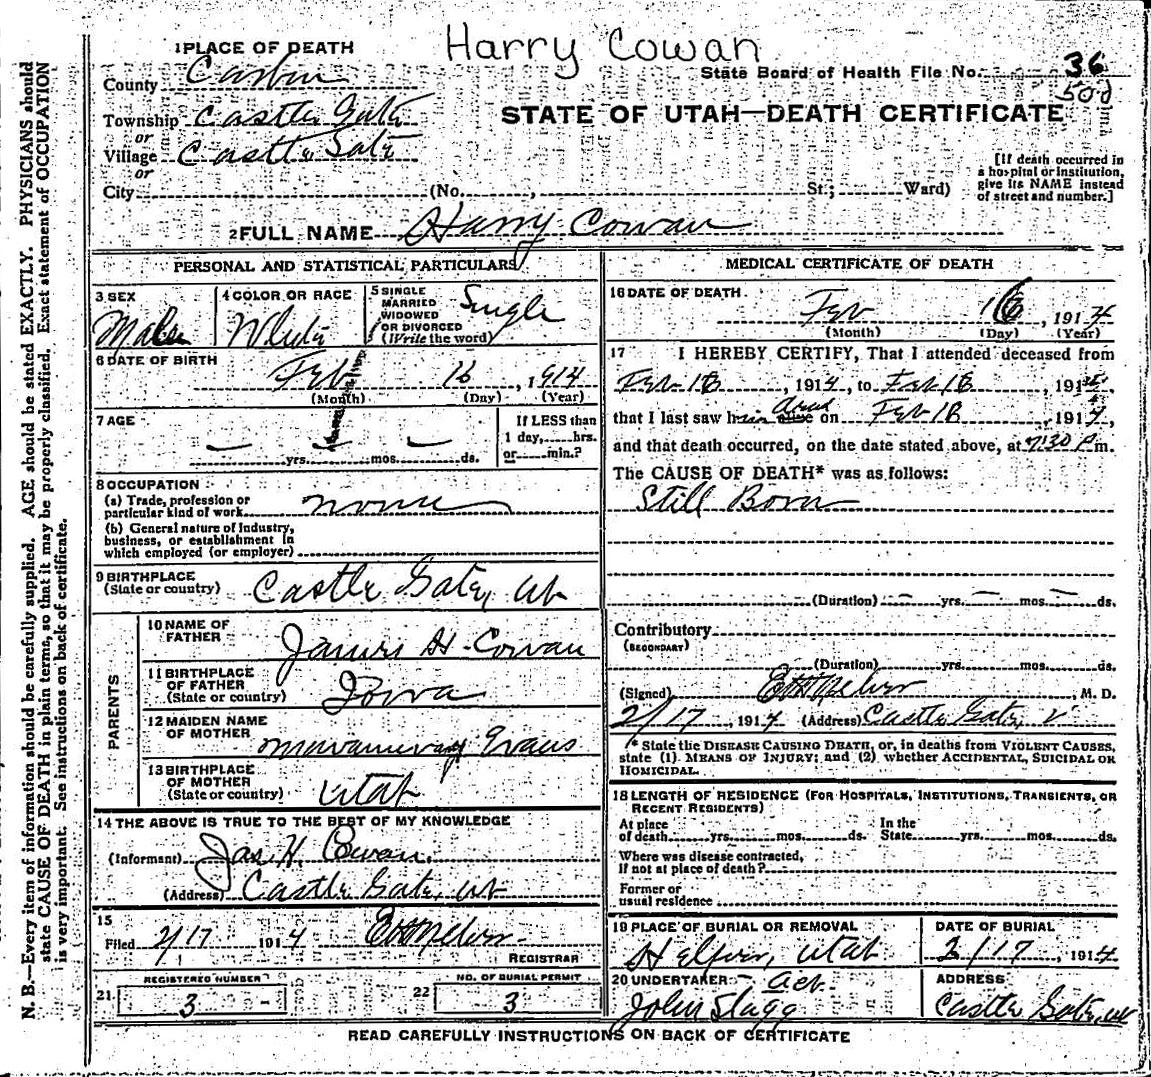 Harry Cowan
1 PLACE OF DEATH
County Carbon
State Board of Health File No. 36
500
Township Castle Gate
or
Village Castle Gate
or
STATE OF UTAH—DEATH CERTIFICATE
[If death occurred in
a hospital or institution,
give its NAME instead
of street and number.]
City (No. , St; Ward)
2 FULL NAME Harry Cowan
PERSONAL AND STATISTICAL PARTICULARS
3 SEX Male
4 COLOR OR RACE White
5 SINGLE
MARRIED
WIDOWED
OR DIVORCED
(Write the word) Single
6 DATE OF BIRTH
Feb 16, 1914
(Month) (Day) (Year)
7 AGE
— — —
yrs. mos. ds.
If LESS than
1 day, hrs.
or min.?
8 OCCUPATION
(a) Trade, profession or
particular kind of work None
(b) General nature of Industry,
business, or establishment in
which employed (or employer)
9 BIRTHPLACE
(State or country) Castle Gate, Ut
PARENTS
10 NAME OF
FATHER James H. Cowan
11 BIRTHPLACE
OF FATHER
(State or country) Iowa
12 MAIDEN NAME
OF MOTHER Evans
13 BIRTHPLACE
OF MOTHER
(State or country) Utah
14 THE ABOVE IS TRUE TO THE BEST OF MY KNOWLEDGE
(Informant) Jas. H. Cowan.
(Address) Castle Gate, Ut
15
Filed 2/17 1914
REGISTRAR
REGISTERED NUMBER
21 3
NO. OF BURIAL PERMIT
22 3
MEDICAL CERTIFICATE OF DEATH
16 DATE OF DEATH
Feb 16, 1914
(Month) (Day) (Year)
17 I HEREBY CERTIFY, That I attended deceased from
Feb 16, 1914, to Feb 16, 191
that I last saw him dead on Feb 16, 1914,
and that death occurred, on the date stated above, at 7:30 P m.
The CAUSE OF DEATH* was as follows:
Still Born
(Duration) — yrs. — mos. — ds.
Contributory
(SECONDARY)
(Duration) yrs. mos. ds.
(Signed) , M. D.
2/17, 1914 (Address) Castle Gate, U
* State the DISEASE CAUSING DEATH, or, in deaths from VIOLENT CAUSES,
state (1) MEANS OF INJURY; and (2) whether ACCIDENTAL, SUICIDAL OR
HOMICIDAL.
18 LENGTH OF RESIDENCE (FOR HOSPITALS, INSTITUTIONS, TRANSIENTS, OR
RECENT RESIDENTS)
At place
of death yrs. mos. ds.
In the
State yrs. mos. ds.
Where was disease contracted,
if not at place of death?
Former or
usual residence
19 PLACE OF BURIAL OR REMOVAL
Helper, Utah
DATE OF BURIAL
2/17, 1914
20 UNDERTAKER - Act.
John Slagg
ADDRESS
Castle Gate, Ut
READ CAREFULLY INSTRUCTIONS ON BACK OF CERTIFICATE
N. B.—Every item of information should be carefully supplied. AGE should be stated EXACTLY. PHYSICIANS should
state CAUSE OF DEATH in plain terms, so that it may be properly classified. Exact statement of OCCUPATION
is very important. See instructions on back of certificate.